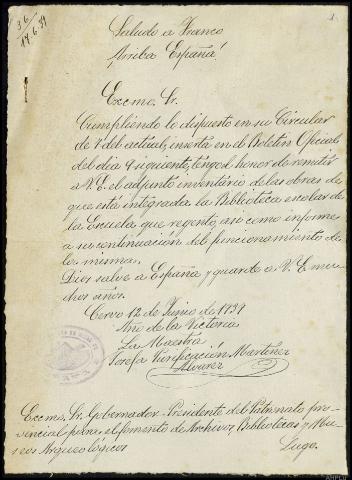 36
17.6.39
1
Saludo a Franco
Arriba España!
Excmo. Sr.
Cumpliendo lo dispuesto en su Circular
de 7 del actual, inserta en el Boletín Oficial
del día 9 siguiente, tengo el honor de remitir
a V. E. el adjunto inventario de las obras de
que está integrada la Biblioteca escolar de
la Escuela que regento, así como informe
a su continuación del funcionamiento de
la misma.
Dios salve a España y guarde a V. E. mu-
chos años.
Cervo 12 de Junio de 1939
Año de la Victoria
La Maestra
Purificación Martínez
Alvarez
Excmo. Sr. Gobernador-Presidente del Patronato pro-
vincial para el fomento de Archivos, Bibliotecas y Mu-
seos Arqueológicos
Lugo.